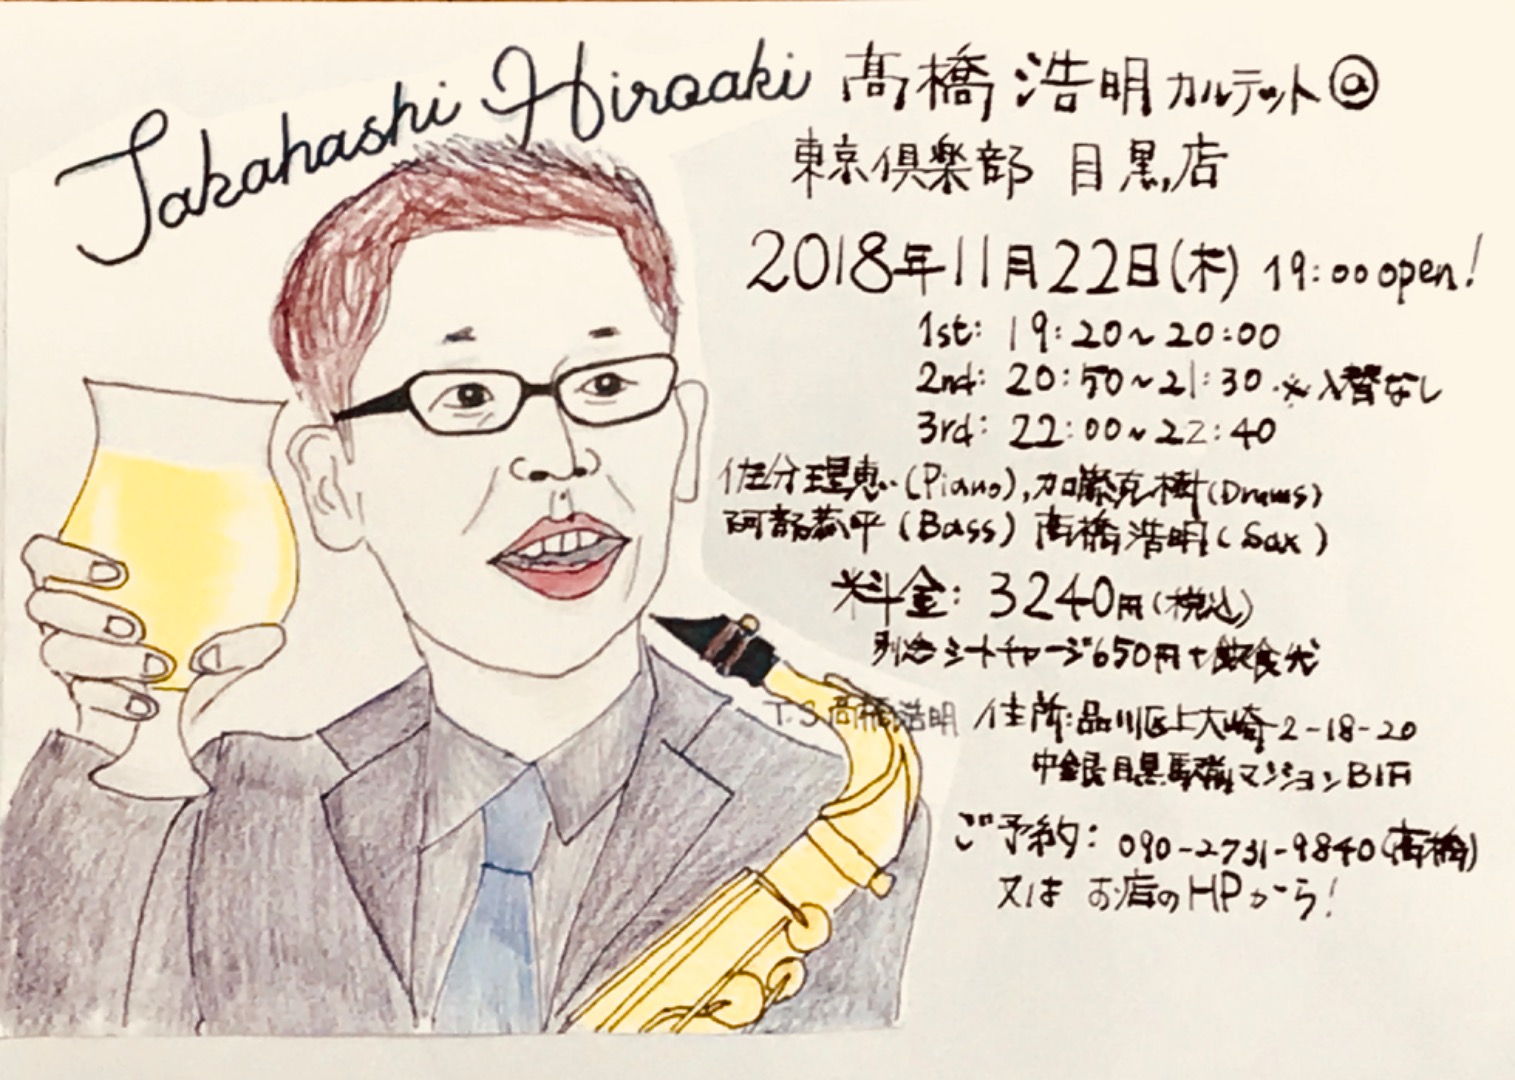 Takahashi Hiroaki
髙橋浩明カルテット@
東京倶楽部 目黒店
2018年11月22日(木) 19:00 open!
1st: 19:20~20:00
2nd: 20:50~21:30 ※入替なし
3rd: 22:00~22:40
佐分理恵(Piano), 加藤克樹(Drums)
阿部恭平(Bass) 髙橋浩明(Sax)
料金: 3240円(税込)
別途シートチャージ650円+飲食代
T.S 髙橋浩明
住所:品川区上大崎2-18-20
中銀目黒駅前マンションB1F
ご予約: 090-2731-9840(髙橋)
又は お店のHPから!